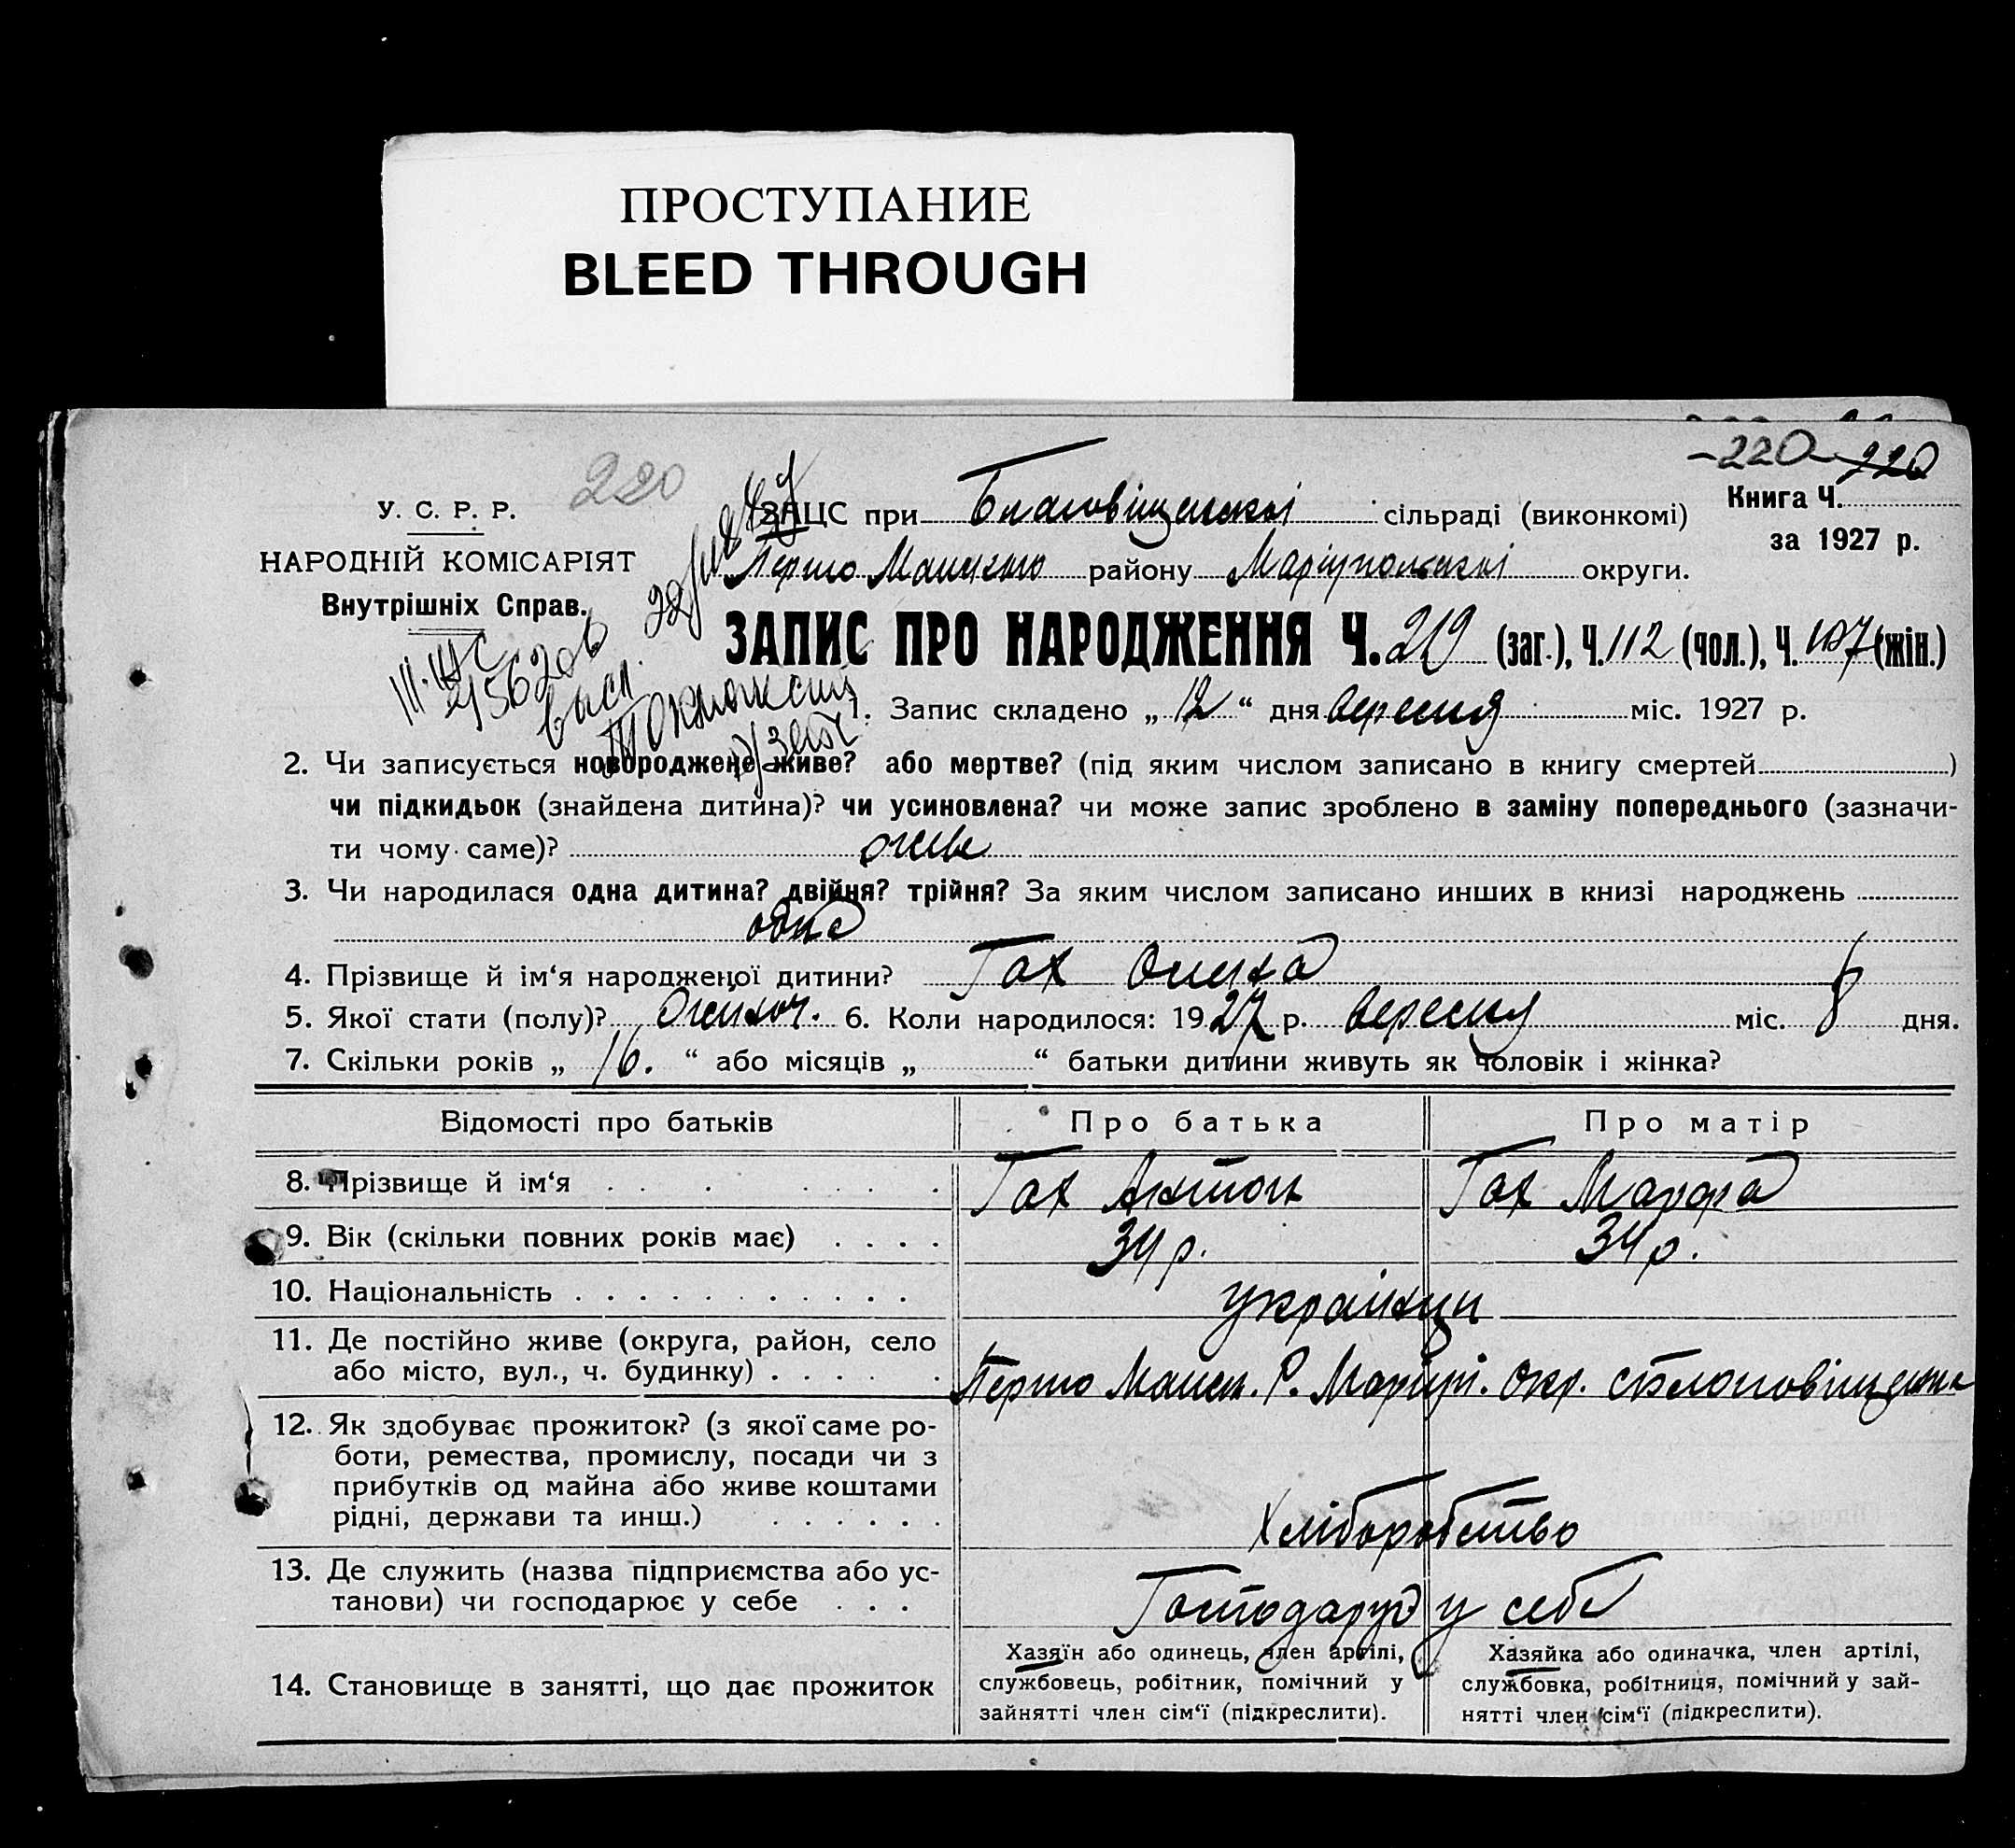 ПРОСТУПАНИЕ
BLEED THROUGH
-220- 220
220
У. С. Р. Р.
НАРОДНІЙ КОМІСАРІЯТ
Внутрішніх Справ.
ЗАЦС при Благовіщенській сільраді (виконкомі)
Книга Ч.
за 1927 р.
Першо Майсько району Маріупольській округи.
ЗАПИС ПРО НАРОДЖЕННЯ Ч. 219 (заг.), Ч. 112 (чол.), Ч. 107 (жін.)
1. Запис складено „ 12 “ дня вересня міс. 1927 р.
2. Чи записується новороджене живе? або мертве? (під яким числом записано в книгу смертей )
чи підкидьок (знайдена дитина)? чи усиновлена? чи може запис зроблено в заміну попереднього (зазначи-
ти чому саме)? живе
3. Чи народилася одна дитина? двійня? трійня? За яким числом записано инших в книзі народжень
одна
4. Прізвище й ім‘я народженої дитини? Гах
5. Якої стати (полу)? жіноч. 6. Коли народилося: 1927 р. вересня міс. 8 дня.
7. Скільки років „ 16. “ або місяців „ “ батьки дитини живуть як чоловік і жінка?
Відомості про батьків Про батька Про матір
8. Прізвище й ім‘я Гах Антон Гах Марфа
9. Вік (скільки повних років має) 34 р. 34 р.
10. Національність українци
11. Де постійно живе (округа, район, село
або місто, вул., ч. будинку) Першо Майськ. Р. Маріуп. Окр.
12. Як здобуває прожиток? (з якої саме ро-
боти, ремества, промислу, посади чи з
прибутків од майна або живе коштами
рідні, держави та инш.) Хліборобство
13. Де служить (назва підприємства або ус-
танови) чи господарює у себе Господарує у себе
14. Становище в занятті, що дає прожиток
Хазяїн або одинець, член артілі,
службовець, робітник, помічний у
зайнятті член сім‘ї (підкреслити).
Хазяйка або одиначка, член артілі,
службовка, робітниця, помічний у зай-
нятті член сім‘ї (підкреслити).